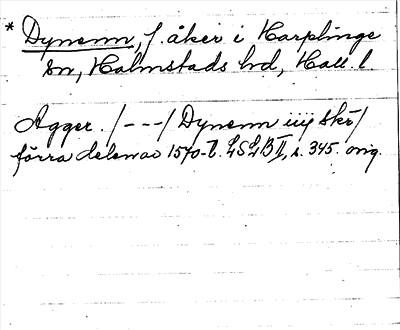 * Dynenn, f. åker i Harplinge
sn, Halmstads hd, Hall. l.
Agger. /---/ Dynenn iiij skr/
förra delen av 1570-t. LSLB II, s. 345. orig.